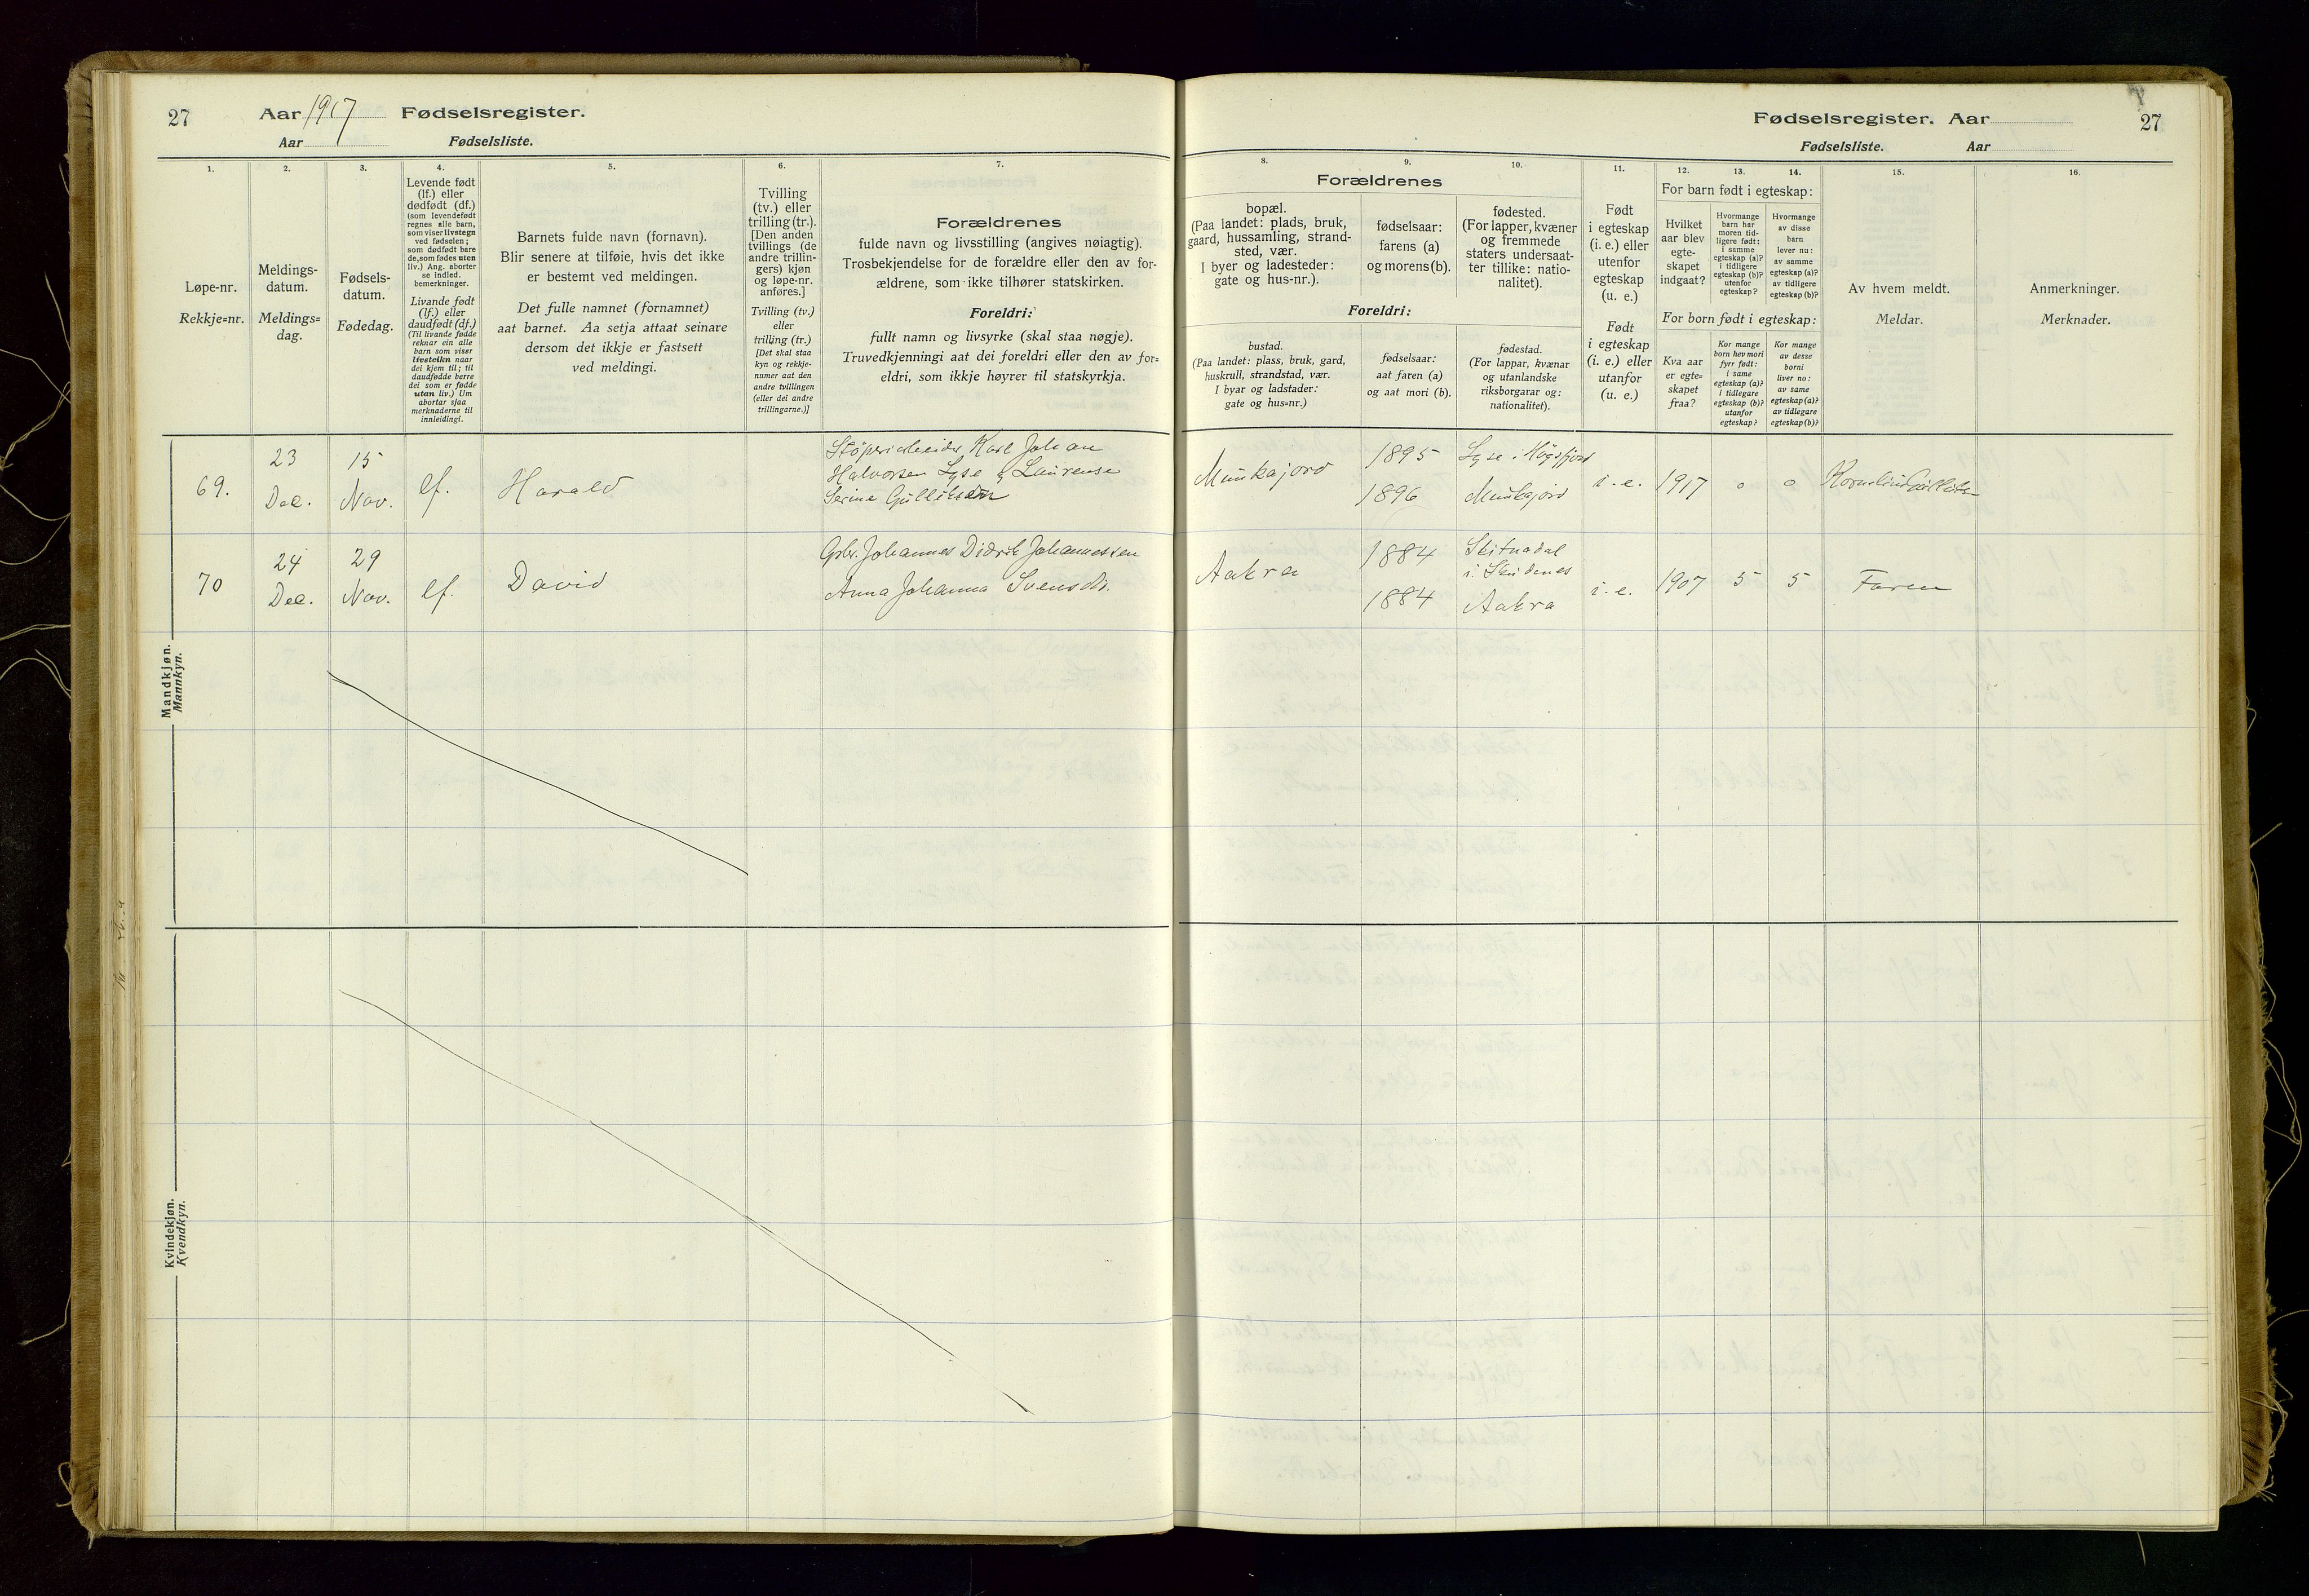 27
Aar 1917 Fødselsregister.
Aar Fødselsliste.
1.
Løpe-nr.
Rekkje=nr.
2.
Meldings-
datum.
Meldings=
dag.
3.
Fødsels-
datum.
Fødedag.
4.
Levende født
(lf.) eller
dødfødt (df.)
(som levendefødt
regnes alle barn,
som viser livstegn
ved fødselen;
som dødfødt bare
de, som fødes uten
liv.) Ang. aborter
se indled.
bemerkninger.
Livande født
(lf.) eller
daudfødt (df.)
(Til livande fødde
reknar ein alle
barn som viser
livsteikn naar
dei kjem til; til
daudfødde berre
dei som er fødde
utan liv.) Um
abortar sjaa
merknaderne til
innleidingi.
5.
Barnets fulde navn (fornavn).
Blir senere at tilføie, hvis det ikke
er bestemt ved meldingen.
Det fulle namnet (fornamnet)
aat barnet. Aa setja attaat seinare
dersom det ikkje er fastsett
ved meldingi.
6.
Tvilling
(tv.) eller
trilling (tr.).
[Den anden
tvillings (de
andre trillin-
gers) kjøn
og løpe-nr.
anføres.]
Tvilling (tv.)
eller
trilling (tr.)
[Det skal staa
kyn og rekkje-
numer aat den
andre tvillingen
(eller dei andre
trillingarne.)]
7.
Forældrenes
fulde navn og livsstilling (angives nøiagtig).
Trosbekjendelse for de forældre eller den av for-
ældrene, som ikke tilhører statskirken.
Foreldri:
fullt namn og livsyrke (skal staa nøgje).
Truvedkjenningi aat dei foreldri eller den av for=
eldri, som ikkje høyrer til statskyrkja.
Mandkjøn.
Mannkyn.
69.
23
Dec.
15
Nov.
lf.
Harald
Støperiarbeider Karl Johan
Halvorsen Lyse & Laurense
Serine Gulliksen
70
24
Dec.
29
Nov.
lf.
David
Gbr. Johannes Didrik Johannessen
Anna Johanna Svensdtr.
Kvindekjøn.
Kvendkyn.
Fødselsregister. Aar
27
Fødselsliste. Aar
8.
9.
10.
Forældrenes
bopæl.
(Paa landet: plads, bruk,
gaard, hussamling, strand-
sted, vær.
I byer og ladesteder:
gate og hus-nr.).
fødselsaar:
farens (a)
og morens (b).
fødested.
(For lapper, kvæner
og fremmede
staters undersaat-
ter tillike: natio-
nalitet).
Foreldri:
bustad.
(Paa landet: plass, bruk, gard,
huskrull, strandstad, vær.
I byar og ladstader:
gate og hus=nr.)
fødselsaar:
aat faren (a)
og aat mori (b).
fødestad.
(For lappar, kvænar
og utanlandske
riksborgarar og:
nationalitet).
11.
Født
i egteskap
(i. e.) eller
utenfor
egteskap
(u. e.)
Født
i egteskap
(i. e.) eller
utanfor
(u. e.)
12.
13.
14.
For barn født i egteskap:
Hvilket
aar blev
egte-
skapet
indgaat?
Hvormange
barn har
moren tid-
ligere født:
i samme
egteskap (a)?
i tidligere
egteskap (b)?
utenfor
egteskap?
Hvormange
av disse
barn
lever nu:
av samme
egteskap (a)?
av tidligere
egteskap (b)?
For born født i egteskap:
Kva aar
er egte=
skapet
fraa?
Kor mange
born hev mori
fyrr født:
i same
egteskap (a)?
i tidlegare
egteskap (b)?
utanfor
egteskap?
Kor mange
av desse
borni
liver no:
av same
egteskap (a)?
av tidlegare
egteskap (b)?
15.
Av hvem meldt.
Meldar.
16.
Anmerkninger.
Merknader.
Munkajord
1895
1896
Lyse i Høgsfjord
Munkajord
i. e.
1917
0
0
Kornelius Gulliks-
Aakra
1884
1884
Skitnadal
i Skudenes
Aakra
i. e.
1907
5
5
Faren